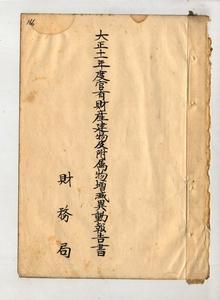 大正十一年度官有財産建物及附属物増減異動報告書
財務局